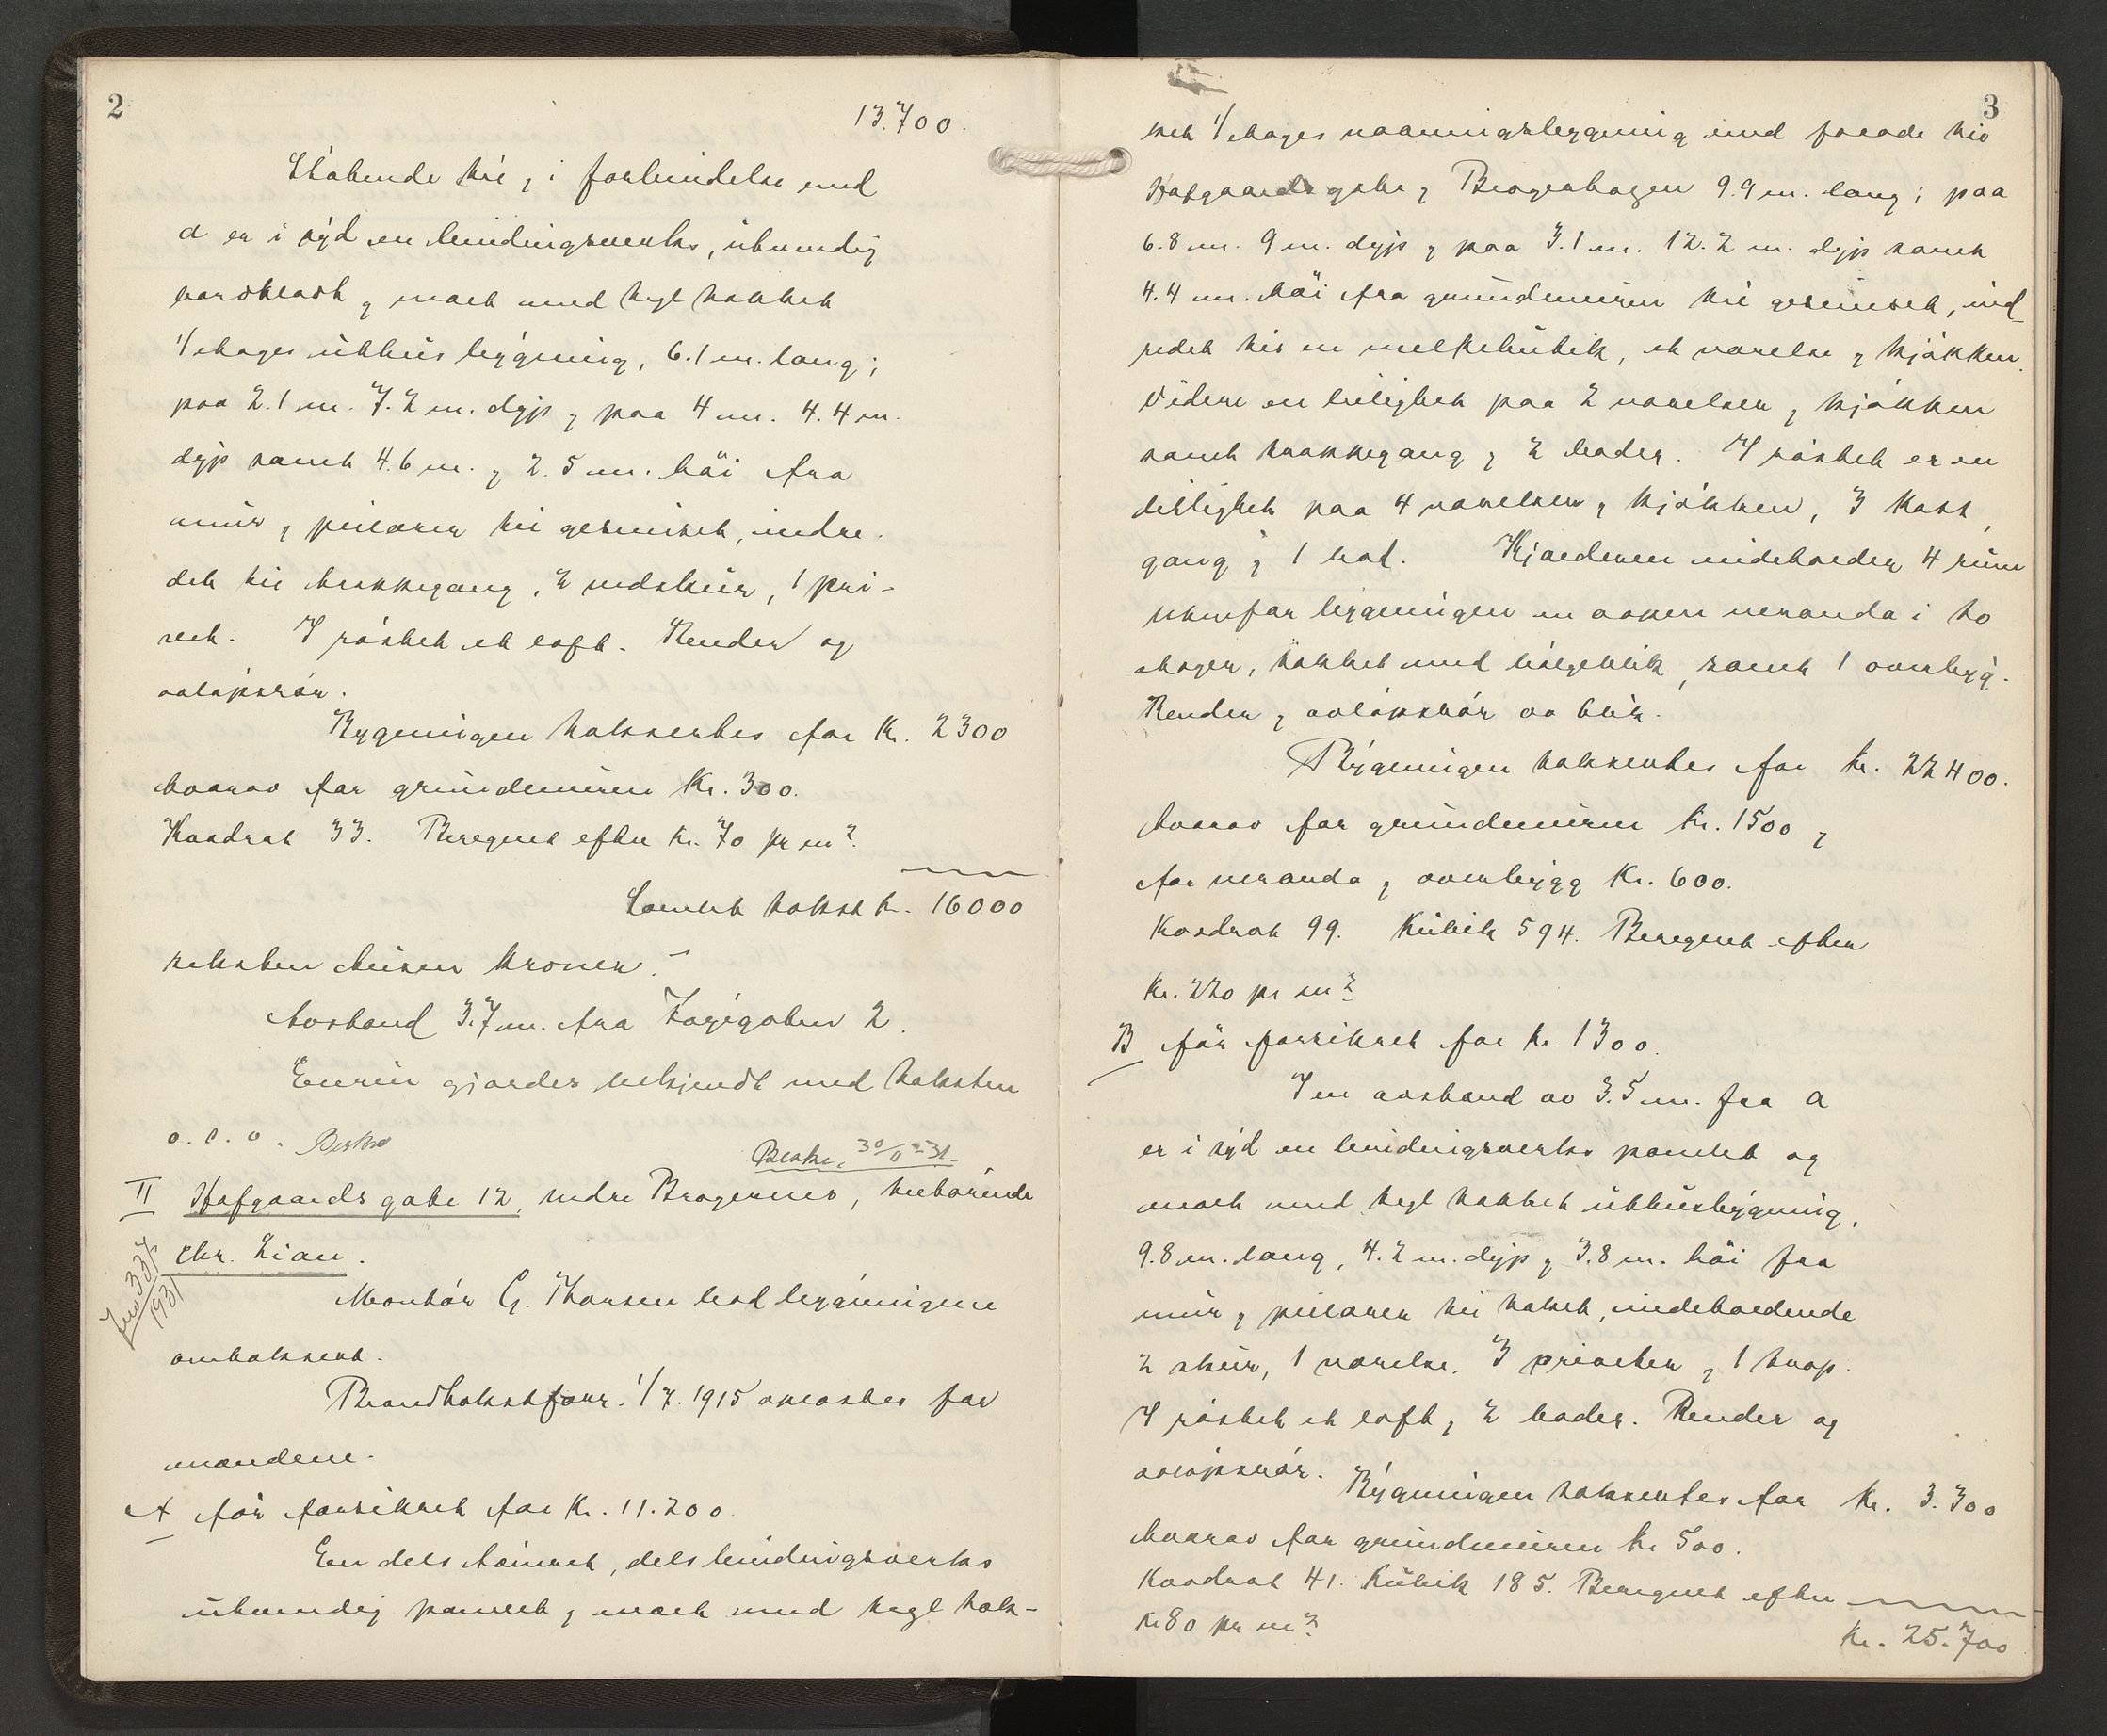 2
13.700.
Stötende til, i forbindelse med
a er i syd en bindingsverks, utvendig
bordklædt og malt med tegl tækket
1/etages uthusbygning, 6.1 m. lang;
paa 2.1 m. 7.2 m. dyp og paa 4 m. 4.4 m.
dyp samt 4.6 m. og 2.5 m. höi fra
mur og pilarer til gesimset, indre-
det til trappegang, 2 vedskur, 1 pri-
vet. I röstet et loft. Render og
avlöpsrör.
Bygningen takseres for Kr. 2300
hvorav for grundmuren Kr. 300.
Kvadrat 33. Beregnet efter Kr. 70 pr m².
Samlet takst kr. 16000
seksten tusen kroner.-
Avstand 3.7 m. fra Togegaten 2.
Eieren gjordes bekjendt med taksten
o. s. v. Beskr
Beskr. 30/11-31-
II Hofgaards gate 12, indre Bragernes, tilhörende
Chr. Lian.
Jno 337/1931
Montör G. Thorsen bad bygningene
omtaksert.
Brandtakstforr. 1/7.1915 oplæstes for
mændene.
A för forsikret for Kr. 11.200
En dels tömret, dels bindingsverks
utvendig panelt og malt med tegl tæk-
3
ket 1/etages vaaningsbygning med facade til
Hofgaards gate og Bragerhagen 9.9 m. lang; paa
6.8 m. 9 m. dyp og paa 3.1 m. 12.2 m. dyp samt
4.4 m. höi fra grundmuren til gesimset, ind-
redet til en melkebutik, et værelse og kjökken.
Videre en leilighet paa 2 værelser og kjökken
samt trappegang og 2 boder. I röstet er en
leilighet paa 4 værelser og kjökken, 3 kott,
gang og 1 bod. Kjælderen indeholder 4 rum
Utenfor bygningen en aapen veranda i to
etager, tækket med bölgeblik, samt 1 overbyg.
Render og avlöpsrör av blik.
Bygningen takseres for kr. 22400.
hvorav for grundmuren kr. 1500 og
for veranda og overbygg Kr. 600.
Kvadrat 99. Kubik 594. Beregnet efter
Kr. 220 pr m².
B för forsikret for kr. 1300.
I en avstand av 3.5 m. fra a
er i syd en bindingsverks panelet og
malt med tegl tækket uthusbygning,
9.8 m. lang, 4.2 m. dyp og 3.8 m. höi fra
mur og pilarer til taket, indeholdende
2 skur, 1 værelse, 3 priveter og 1 trap.
I röstet et loft og 2 boder. Render og
avlöpsrör. Bygningen takseres for kr. 3.300
hvorav for grundmuren kr 500.
Kvadrat 41. Kubik 185. Beregnet efter
Kr 80 pr m².
kr. 25.700